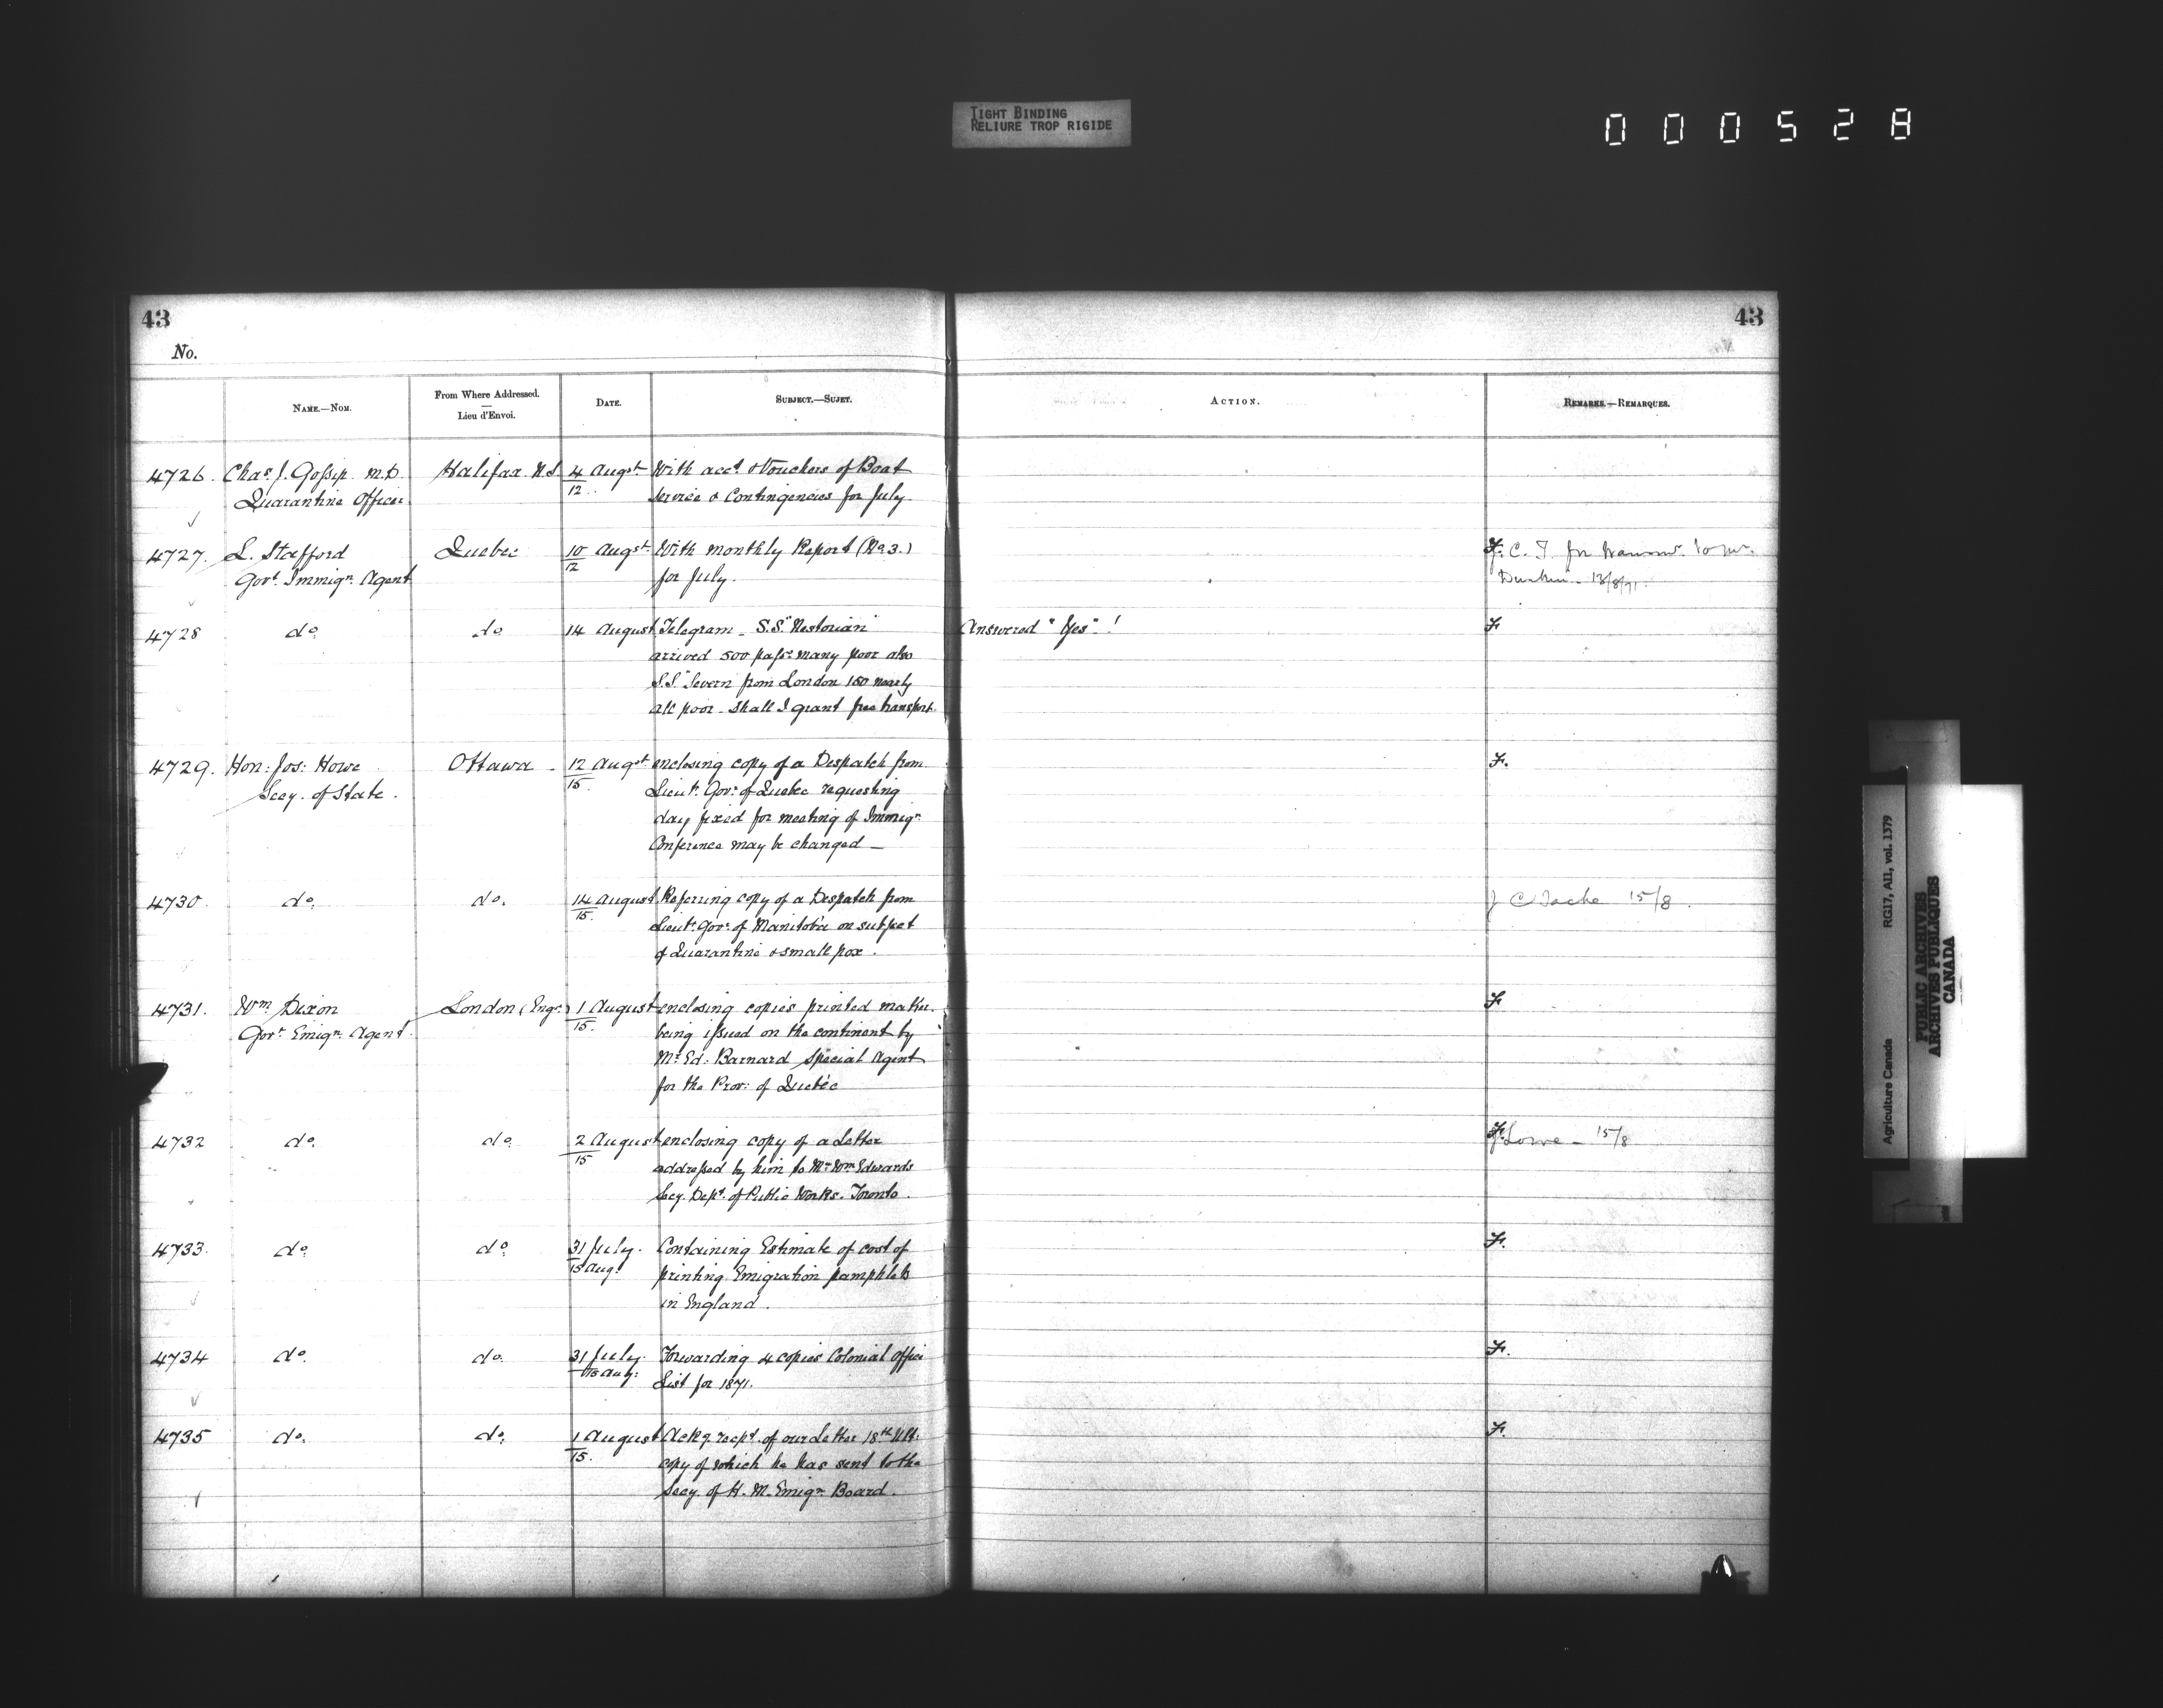 TIGHT BINDING
RELIURE TROP RIGIDE
000528
43
43
No.
NAME.—NOM.
From Where Addressed.
Lieu d'Envoi.
DATE.
SUBJECT.—SUJET.
ACTION.
REMARKS.—REMARQUES.
4726. Chas. J. Gossip. M.D. Halifax. N.S 4 Augst. With acct. & Vouchers of Boat
Quarantine Officer 12 service & Contingencies for July
4727. L. Stafford Quebec 10 Augst. With monthly Report (No 3.) F. C. T. for
Govt. Immign. Agent 12 for July. 13/8/71.
4728 do. do. 14 August Telegram - S.S. "Nestorian" Answered "Yes". ! F
arrived 500 passr. many poor also
S.S. "Severn from London 150 nearly
all poor - Shall I grant free transport.
4729. Hon: Jos: Howe Ottawa - 12 Augst. enclosing copy of a Despatch from F.
Secy. of State. 15. Lieut. Govr. of Quebec requesting
day fixed for meeting of Immign.
Conference may be changed —
4730. do. do. 14 August Referring copy of a Despatch from J C Tache 15/8.
15. Lieut. Govr. of Manitoba on subject
of Quarantine & small pox.
4731. Wm. Dixon London (Engd.) 1 August enclosing copies printed matter. F
Govt. Emign. Agent. 15. being issued on the continent by
Mr. Ed: Barnard Special Agent
for the Prov: of Quebec
4732 do. do. 2 August enclosing copy of a Letter F. Lowe - 15/8
15 addressed by him to Mr. Wm. Edwards
Secy. Dept. of Public Works. Toronto.
4733. do. do. 31 July. Containing Estimate of cost of F.
15 Aug: printing Emigration pamphlets
in England.
4734 do. do. 31 July. Forwarding 4 copies Colonial Office F.
15 Aug: List for 1871.
4735 do. do. 1 August Ackg. recpt. of our Letter 18th Ult: F.
15. copy of which he has sent to the
Secy. of H. M. Emign. Board.
Agriculture Canada RG17, AII, vol. 1379
PUBLIC ARCHIVES
ARCHIVES PUBLIQUES
CANADA